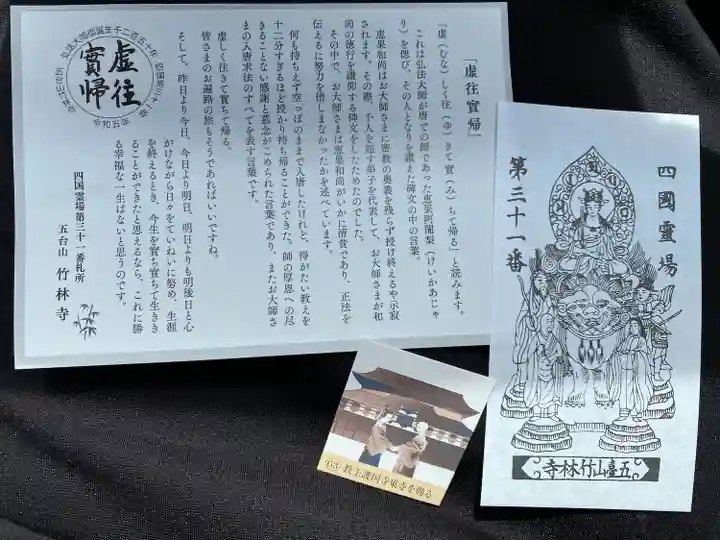 「虚往實帰」
「虚（むな）しく往（ゆ）きて實（み）ちて帰る」と読みます。
これは弘法大師が唐での師であった恵果阿闍梨（けいかあじゃ
り）を偲び、その人となりを讃えた碑文の中の言葉。
恵果和尚はお大師さまに密教の奥義を残らず授け終えるや示寂
されます。その際、千人を超す弟子を代表して、お大師さまが和
尚の徳行を讃仰する碑文をしたためたのでした。
その中で、お大師さまは恵果和尚がいかに清貧であり、正法を
伝えるに努力を惜しまなかったかを述べています。
何も持ちえず空っぽのままで入唐したけれど、得がたい教えを
十二分すぎるほど授かり持ち帰ることができた。師の厚恩への尽
きることない感謝と慕念がこめられた言葉であり、またお大師さ
まの入唐求法のすべてを表す言葉です。
虚しく往きて實ちて帰る。
皆さまのお遍路の旅もそうであればいいですね。
そして、昨日より今日、今日より明日、明日よりも明後日と心
がけながら日々をていねいに努め、生涯
を終えるとき、今生を實ち實ちて生きき
ることができたと思えるなら、これに勝
る幸福な一生はないと思うのです。
四国霊場第三十一番札所
五台山 竹林寺
虚往
實帰
弘法大師御誕生千二百五十年
四國霊場
第三十一番
五臺山竹林寺
63 教王護国寺東寺を観る